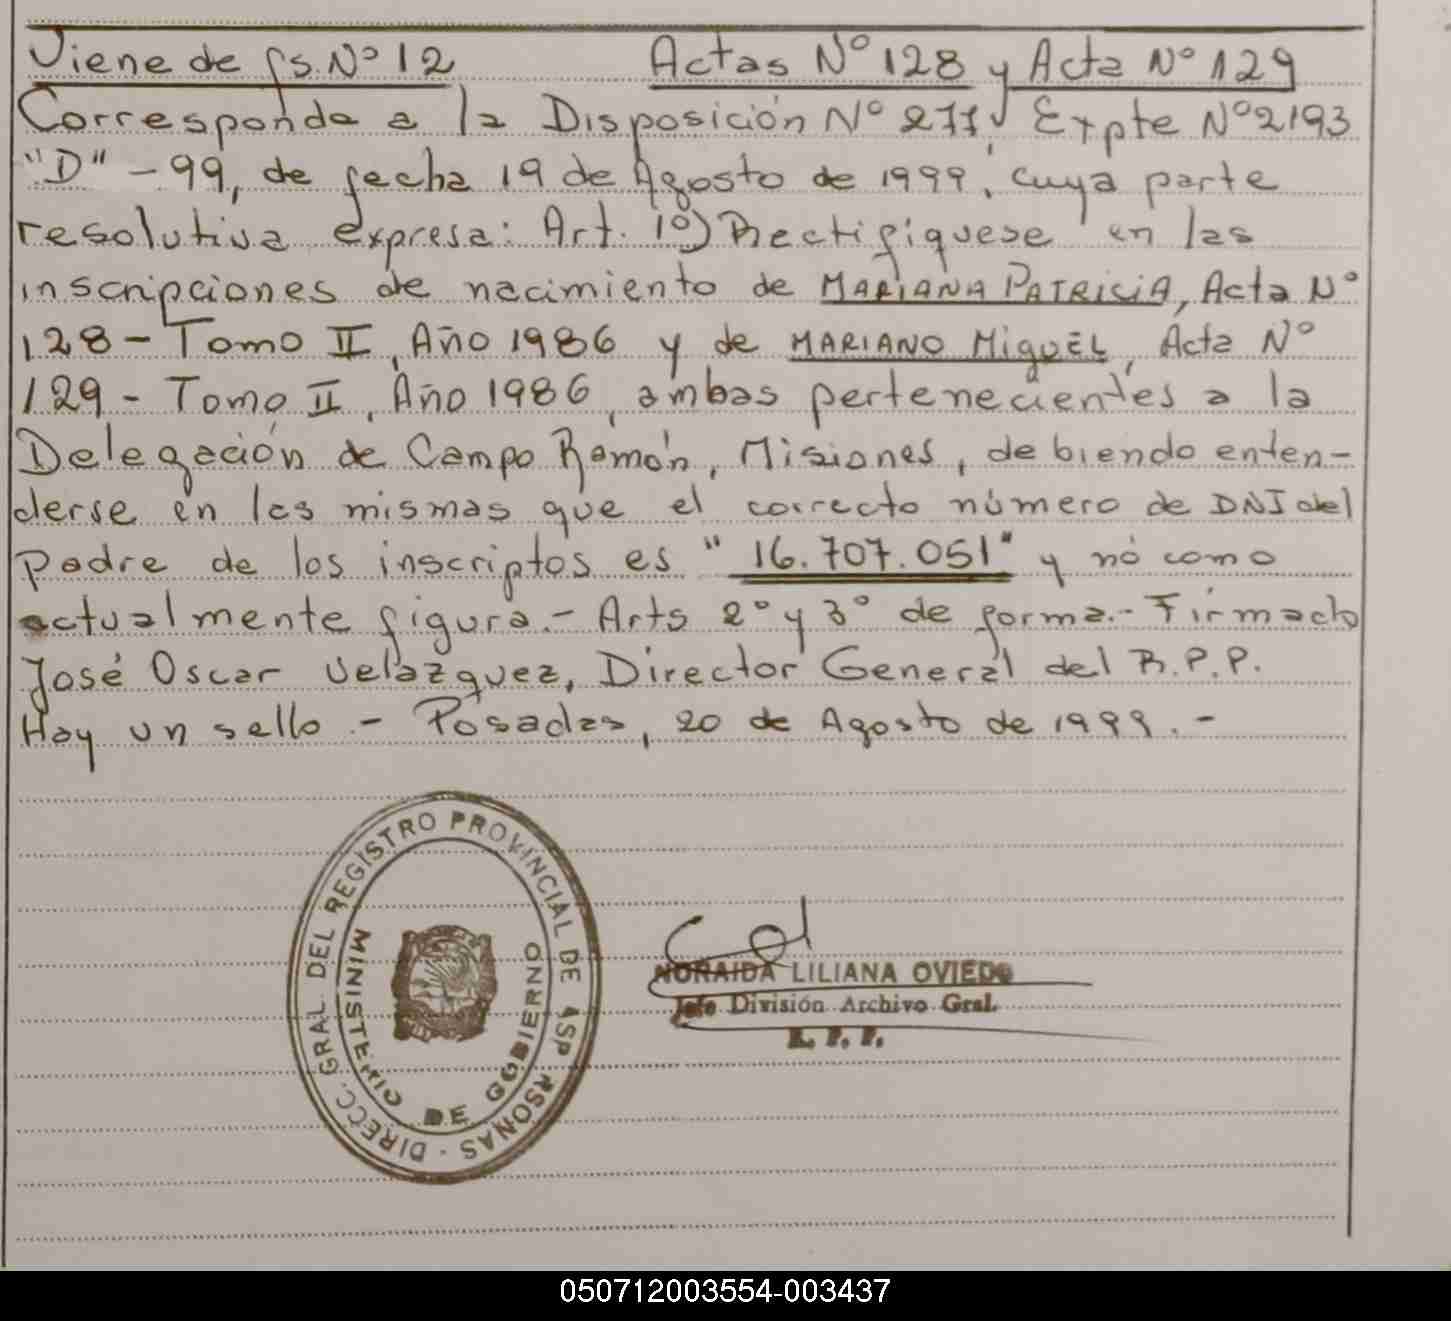 Viene de fs. Nº 12 Actas Nº 128 y Acta Nº 129
Corresponde a la Disposición Nº 277 Expte Nº 2193
"D" - 99, de fecha 19 de Agosto de 1999, cuya parte
resolutiva expresa: Art. 1º) Rectifíquese en las
inscripciones de nacimiento de MARIANA PATRICIA, Acta Nº
128 - Tomo II, Año 1986 y de MARIANO MIGUEL, Acta Nº
129 - Tomo II, Año 1986, ambas pertenecientes a la
Delegación de Campo Ramón, Misiones, debiendo enten-
derse en las mismas que el correcto número de DNI del
padre de los inscriptos es "16.707.051" y nó como
actualmente figura.- Arts 2º y 3º de forma.- Firmado
José Oscar Velazquez, Director General del R.P.P.
Hay un sello.- Posadas, 20 de Agosto de 1999.-
DIRECC. GRAL. DEL REGISTRO PROVINCIAL DE LAS PERSONAS
MINISTERIO DE GOBIERNO
NORAIDA LILIANA OVIEDO
Jefe División Archivo Gral.
R. P. P.
050712003554-003437